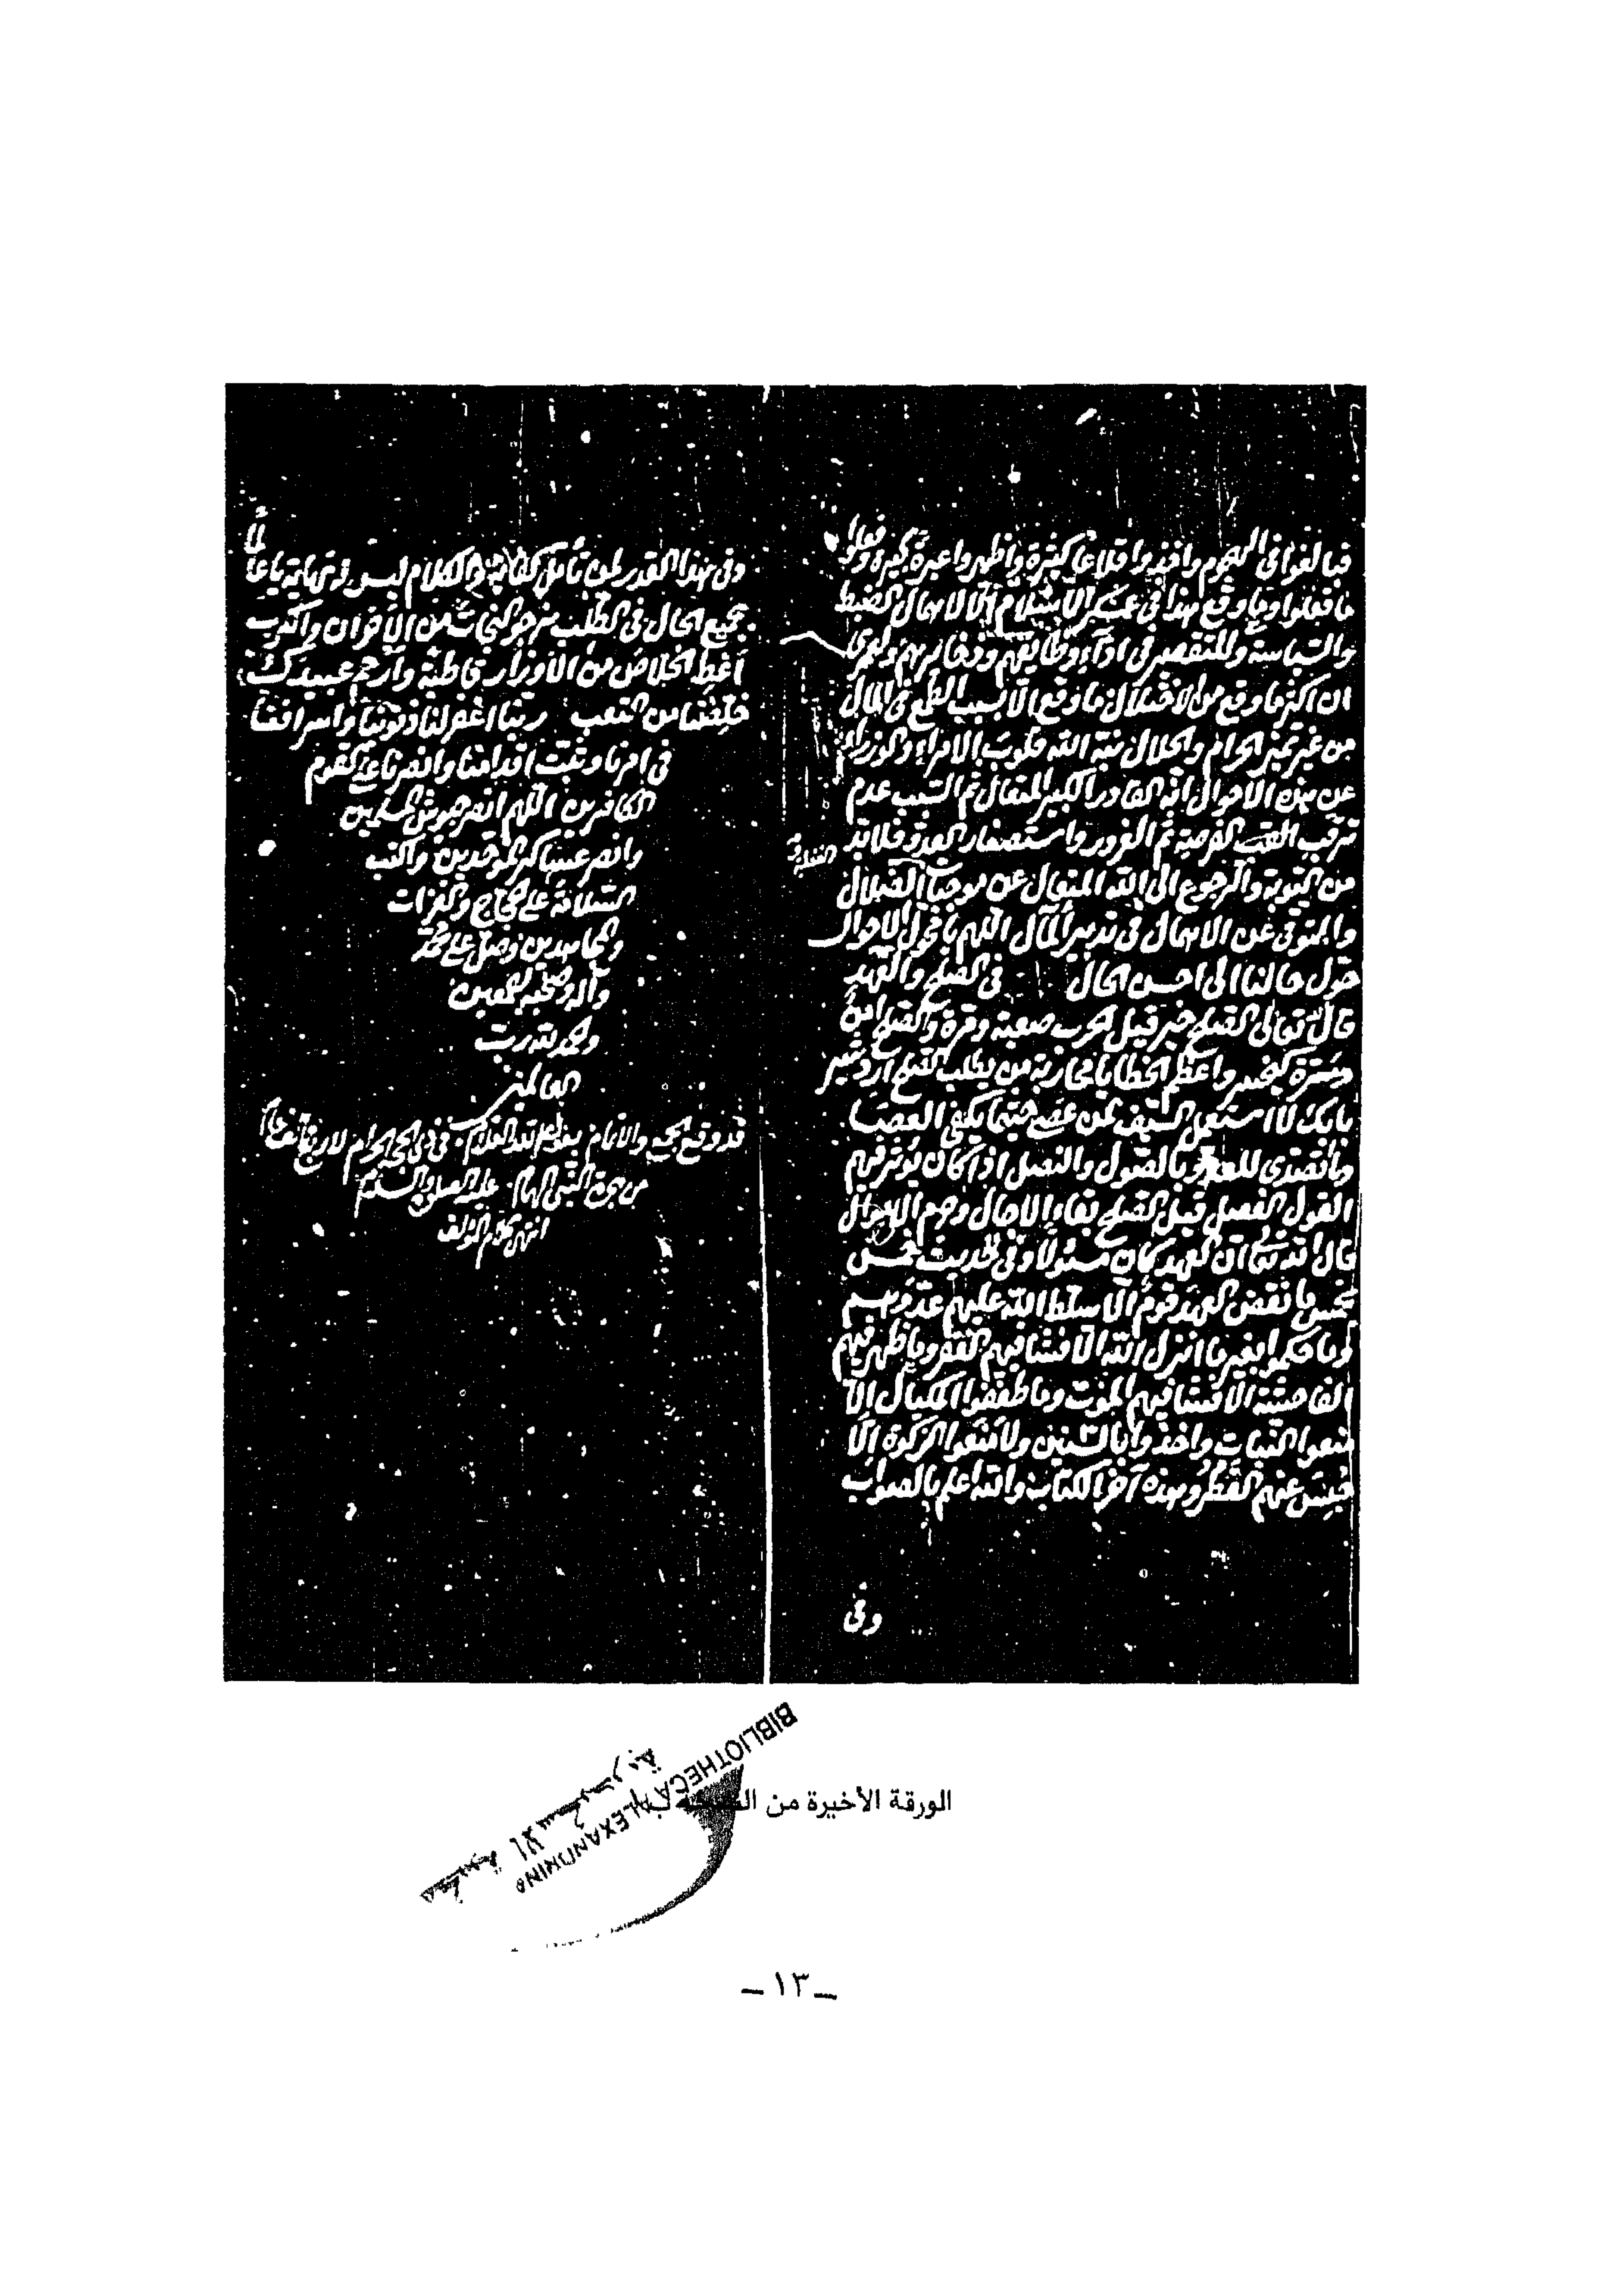 فبالغوا فى الهجوم واخذوا قلاعا كثيرة واظهروا غيرة كبيرة وفعلوا
ما فعلوا وما وقع هذا فى عسكر الاسلام الا لاهمال الضبط
والسياسة وللتقصير فى اداء وظايفهم ولعمرى
ان اكثر ما وقع من الاختلال ما وقع الا بسبب الطمع فى المال
من غير تميز الحرام والحلال نبه الله قلوب الامراء والوزراء
عن هذه الاحوال انه القادر الكبير المتعال ثم السبب عدم
ترقب الفرصة ثم الغرور واستصغار العدو فلا بد
من التوبة والرجوع الى الله المتعال عن موجبات الضلال
والتوقى عن الاهمال فى تدبير المآل اللهم يا محول الاحوال
حول حالنا الى احسن الحال فى الصلح والعهد
قال تعالى الصلح خير قيل الحرب صعبة ومرة والصلح امن
ومسرة واعظم الخطايا محاربة من يطلب الصلح اردشير
بابك لا استعمل السيف لمن عصى حيثما يكفى العصا
وما تصدى للعدو بالصول والنصل اذا كان يؤثر فيهم
القول الفصل قيل الصلح بقاء الاجال وحرم الاموال
قال الله تعالى ان العهد كان مسئولا وفى الحديث خمس
بخمس ما نقض العهد قوم الا سلط الله عليهم عدوهم
وما حكموا بغير ما انزل الله الا فشا فيهم الفقر وما ظهر فيهم
الفاحشة الا فشا فيهم الموت وما طففوا المكيال الا
منعوا النبات واخذوا بالسنين ولا منعوا الزكوة الا
حبس عنهم القطر وهذه آخر الكتاب والله اعلم بالصواب
وفى
وفى هذا القدر لمن تأمل كفاية والكلام ليس فى نهاية يا عالما
بجميع الحال فى الطلب نرجو النجاة من الاخوان والكرب
اعط الخلاص من الاوزار قاطبة وارحم عبيدك
خلصنا من التعب ربنا اغفر لنا ذنوبنا واسرافنا
فى امرنا وثبت اقدامنا وانصرنا على القوم
الكافرين اللهم انصر جيوش المسلمين
وانصر عساكر الموحدين واكتب
السلامة على الحجاج والغزات
والمجاهدين وصل على محمد
وآله وصحبه اجمعين
والحمد لله رب
العالمين
قد وقع الجمع والاتمام فى ذى الحجة الحرام
من هجرة النبى الهمام عليه الصلوة والسلام
انتهى كلام المؤلف
الورقة الأخيرة من النسخة ب
BIBLIOTHECA ALEXANDRINA
مكتبة الاسكندرية
— ١٣ —